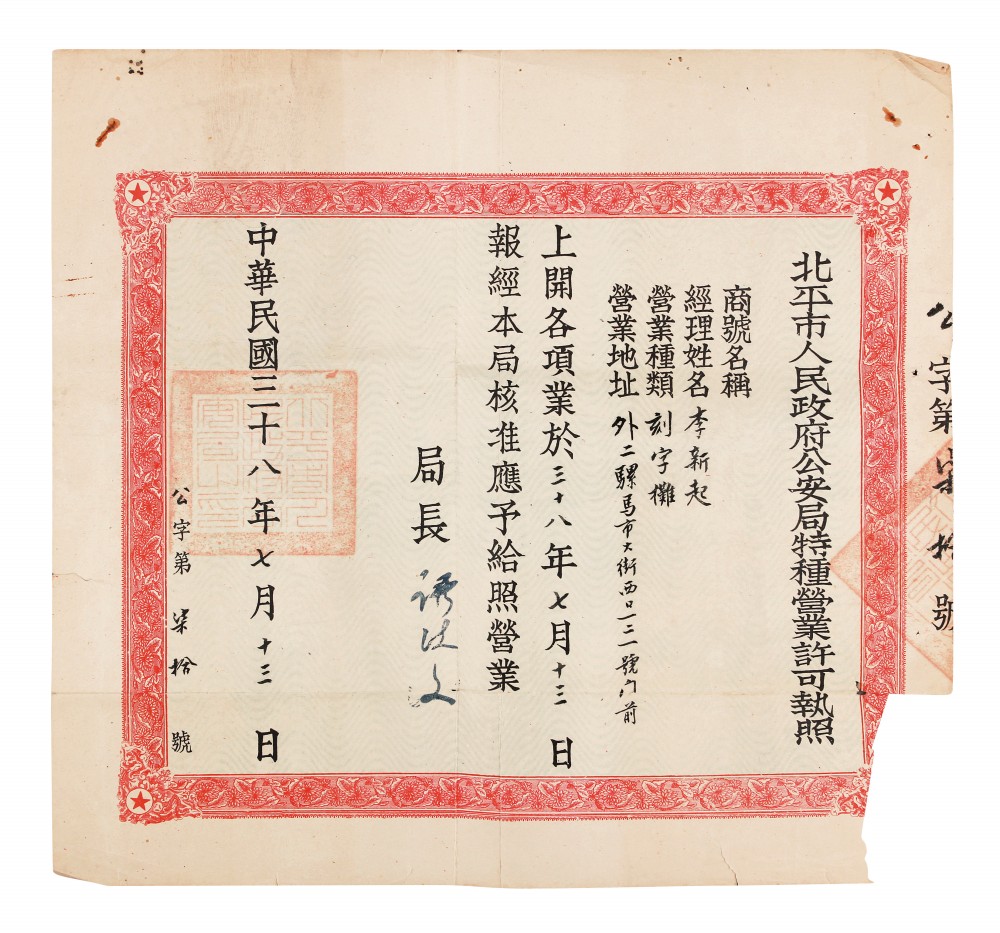 公字第柒拾號
北平市人民政府公安局特種營業許可執照
商號名稱
經理姓名 李新起
營業種類 刻字攤
營業地址 外二騾馬市大街西口二三一號門前
上開各項業於三十八年七月十三日
報經本局核准應予給照營業
局長 譚政文
中華民國三十八年七月十三日
公字第柒拾號